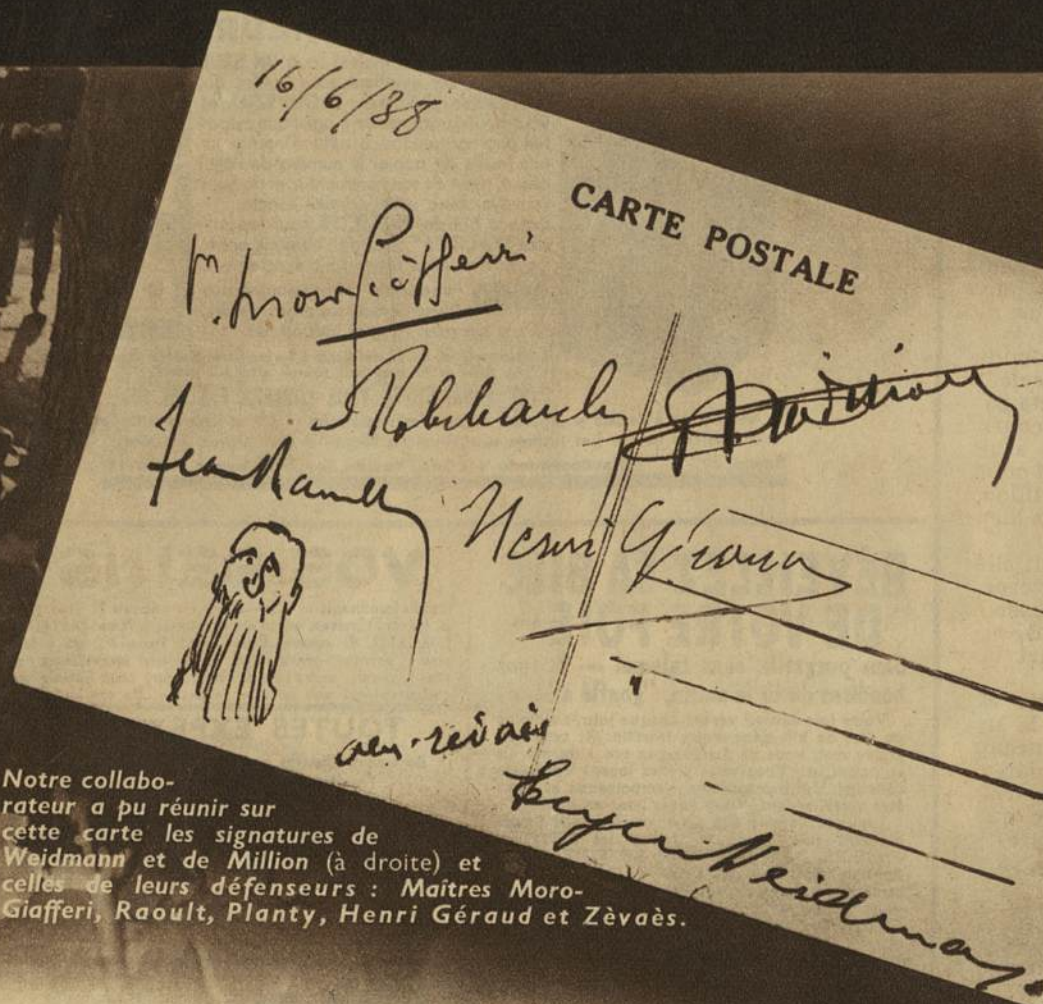 16/6/38
CARTE POSTALE
Henri Géraud
au-revoir
Eugen Weidmann
Notre collabo-
rateur a pu réunir sur
cette carte les signatures de
Weidmann et de Million (à droite) et
celles de leurs défenseurs : Maîtres Moro-
Giafferi, Raoult, Planty, Henri Géraud et Zèvaès.